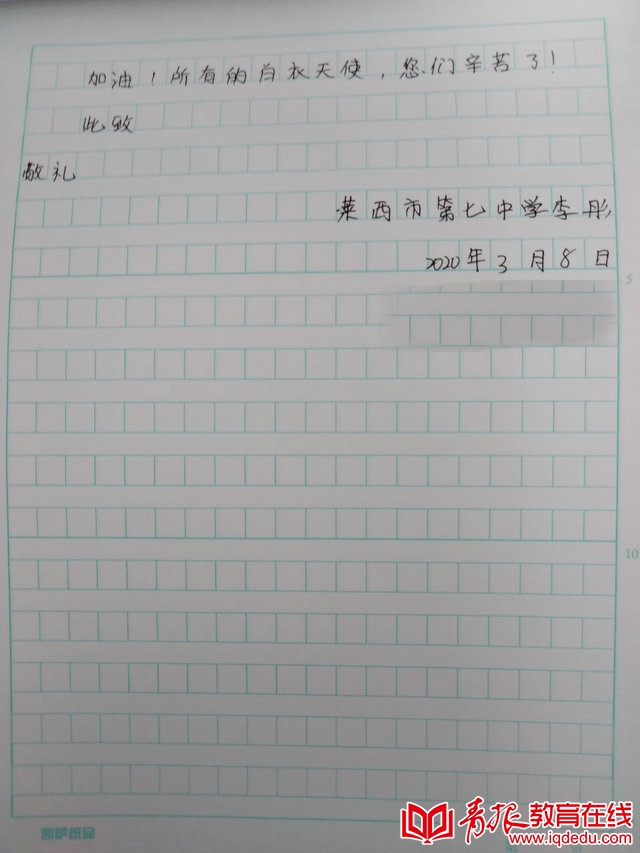 加油！所有的白衣天使，您们辛苦了！
此致
敬礼
莱西市第七中学李彤
2020年3月8日
5
10
凯萨纸品
青报教育在线
www.iqdedu.com